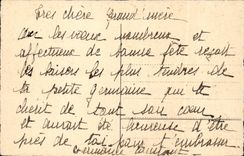 Très chère Grand'mère
avec les vœux nombreux et
affectueux de bonne fête reçoit
les baisers les plus tendres de
ta petite germaine qui te
chérit de tout son cœur
et aurait été heureuse d'être
près de toi pour t'embrasser